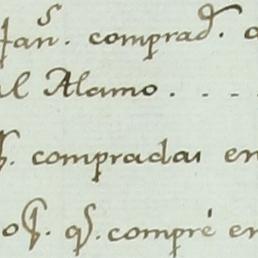 Jan^s. comprad^s. a
al Alamo . . . .
q^s. compradas en
o^s. q^s. compré en